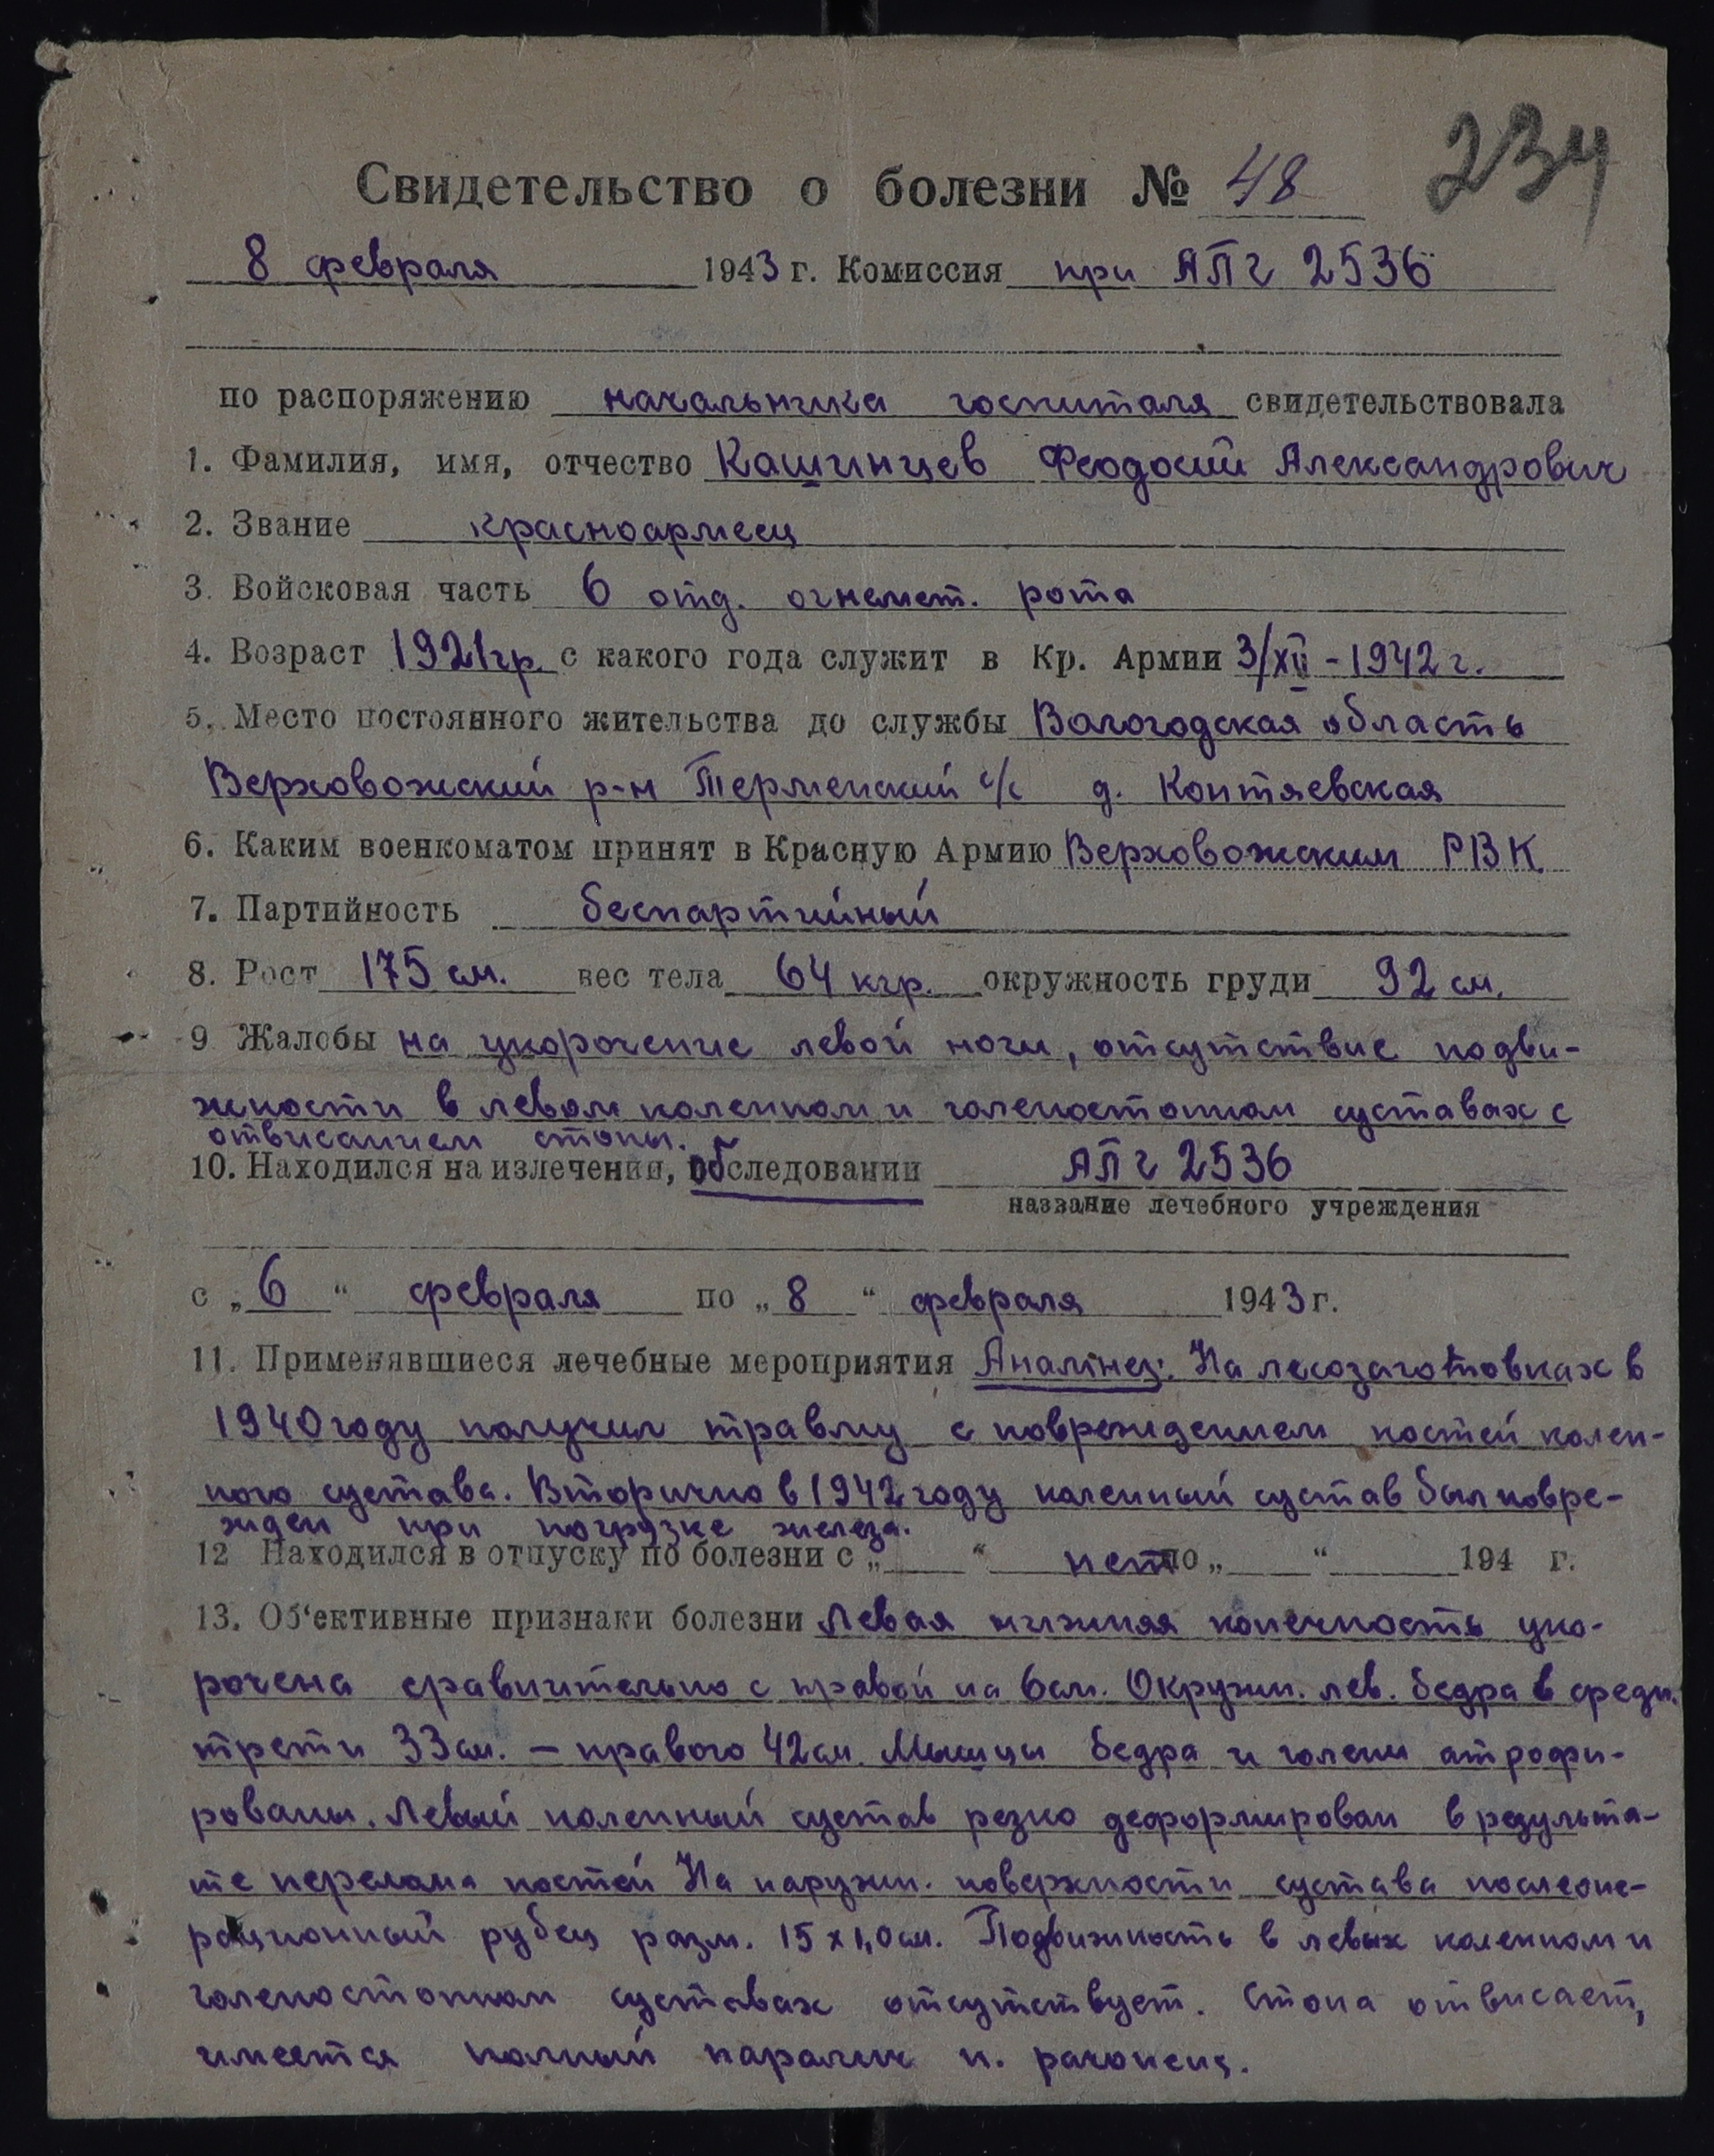 234
Свидетельство о болезни № 48
8 февраля 1943 г. Комиссия при АПГ 2536
по распоряжению начальника госпиталя свидетельствовала
1. Фамилия, имя, отчество Кашинцев Феодосий Александрович
2. Звание красноармеец
3. Войсковая часть 6 отд. огнемет. рота
4. Возраст 1921 гр. с какого года служит в Кр. Армии 3/XII - 1942 г.
5. Место постоянного жительства до службы Вологодская область
Верховожский р-н Терменский с/с д. Коптяевская
6. Каким военкоматом принят в Красную Армию Верховожским РВК
7. Партийность беспартийный
8. Рост 175 см. вес тела 64 кгр. окружность груди 92 см.
9 Жалобы на укорочение левой ноги, отсутствие подви-
жности в левом коленном и голеностопном суставах с
отвисанием стопы.
10. Находился на излечении, обследовании АПГ 2536
название лечебного учреждения
с „6“ февраля по „8“ февраля 1943 г.
11. Применявшиеся лечебные мероприятия Анамнез: На лесозаготовках в
1940 году получил травму с повреждением костей колен-
ного сустава. Вторично в 1942 году коленный сустав был повре-
жден при погрузке железа.
12 Находился в отпуску по болезни с „ “ нет по „ “ 194 г.
13. Об‘ективные признаки болезни Левая нижняя конечность уко-
рочена сравнительно с правой на 6 см. Окружн. лев. бедра в средн.
трети 33 см. – правого 42 см. Мышцы бедра и голени атрофи-
рованы. Левый коленный сустав резко деформирован в результа-
те перелома костей На наружн. поверхности сустава послеопе-
рационный рубец разм. 15 x 1,0 см. Подвижность в левых коленном и
голеностопном суставах отсутствует. Стопа отвисает,
имеется полный паралич н.